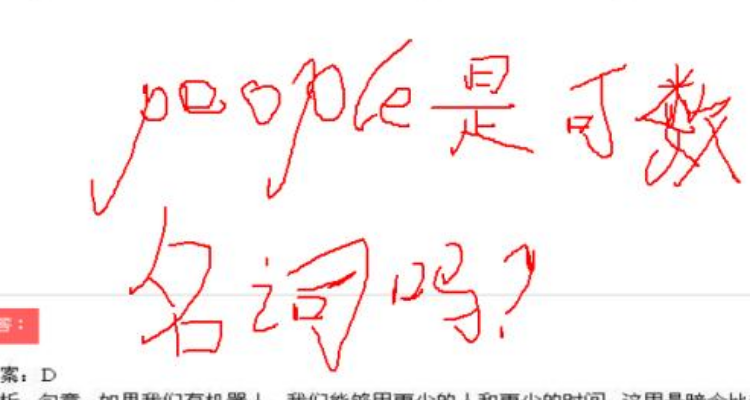 people是可数
名词吗?
答：
案: D
析 句意 如果我们有机器人 我们能够用更少的人和更少的时间 这里是暗含比